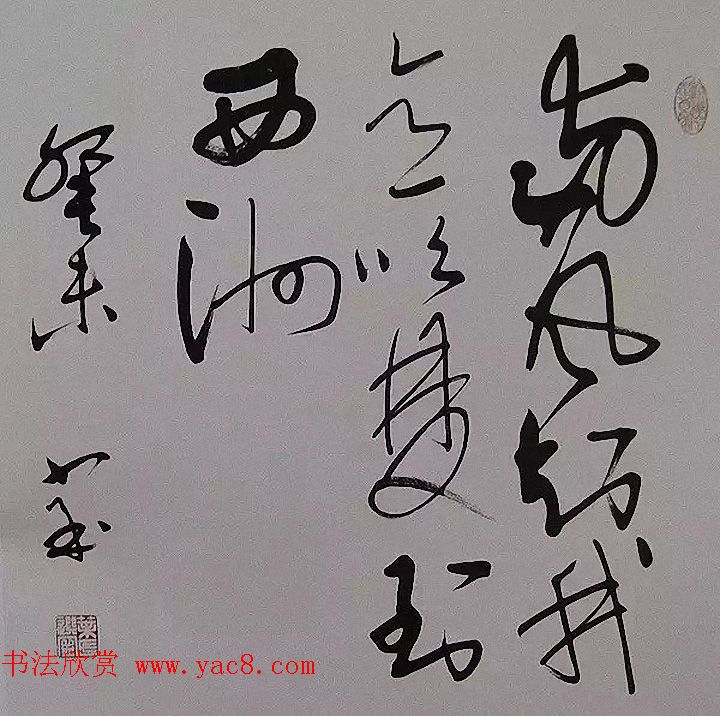 南風知我
意吹夢到
西洲
癸未
书法欣赏 www.yac8.com